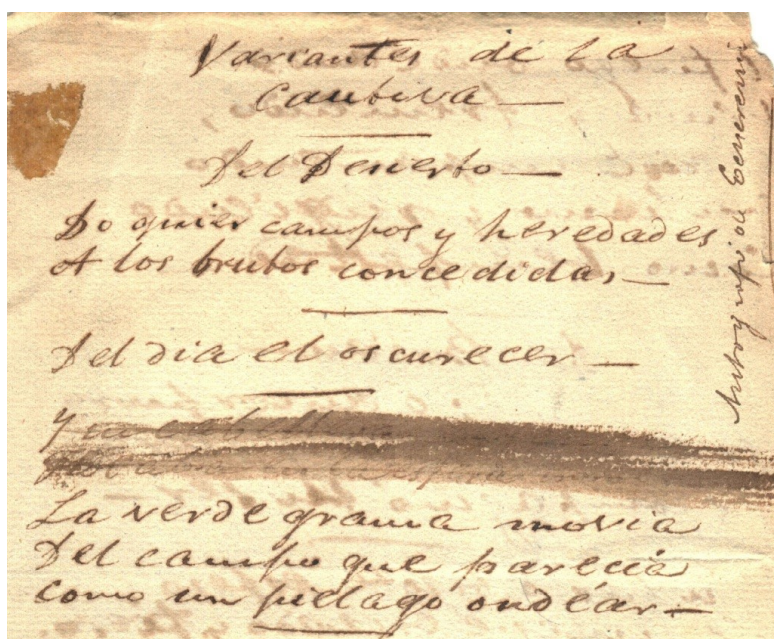 Variantes de la
Cautiva—
Del Decierto—
Do quier campos y heredades
A los brutos concedidas—
Del dia el oscurecer—
La verde grama movia
Del campo que parecia
como un piélago ondéar—
Autografo de